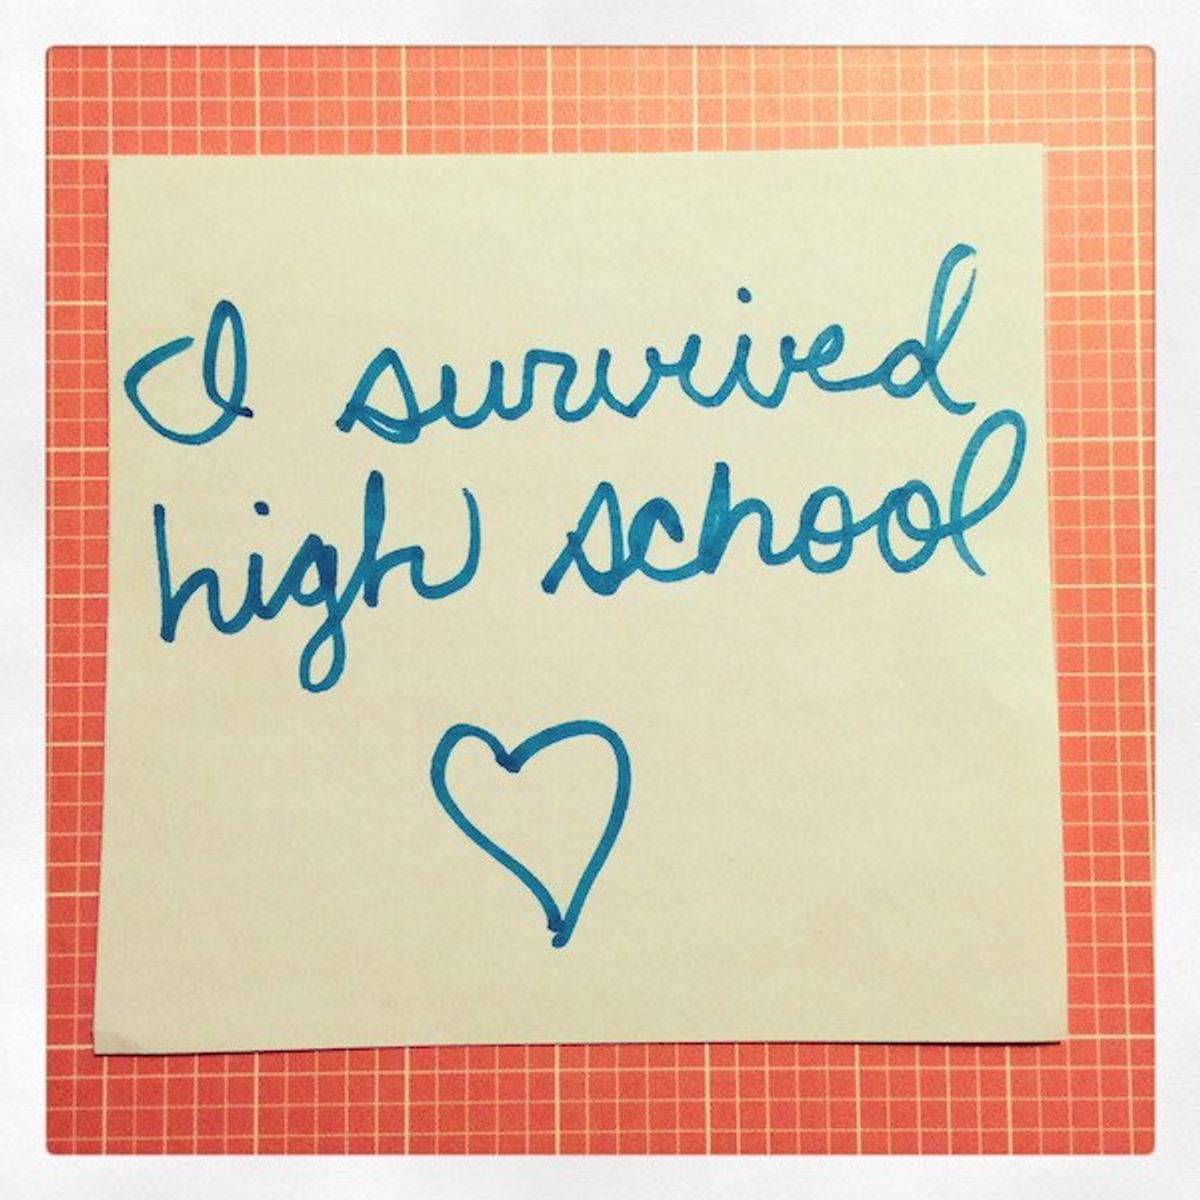 I survived
high school